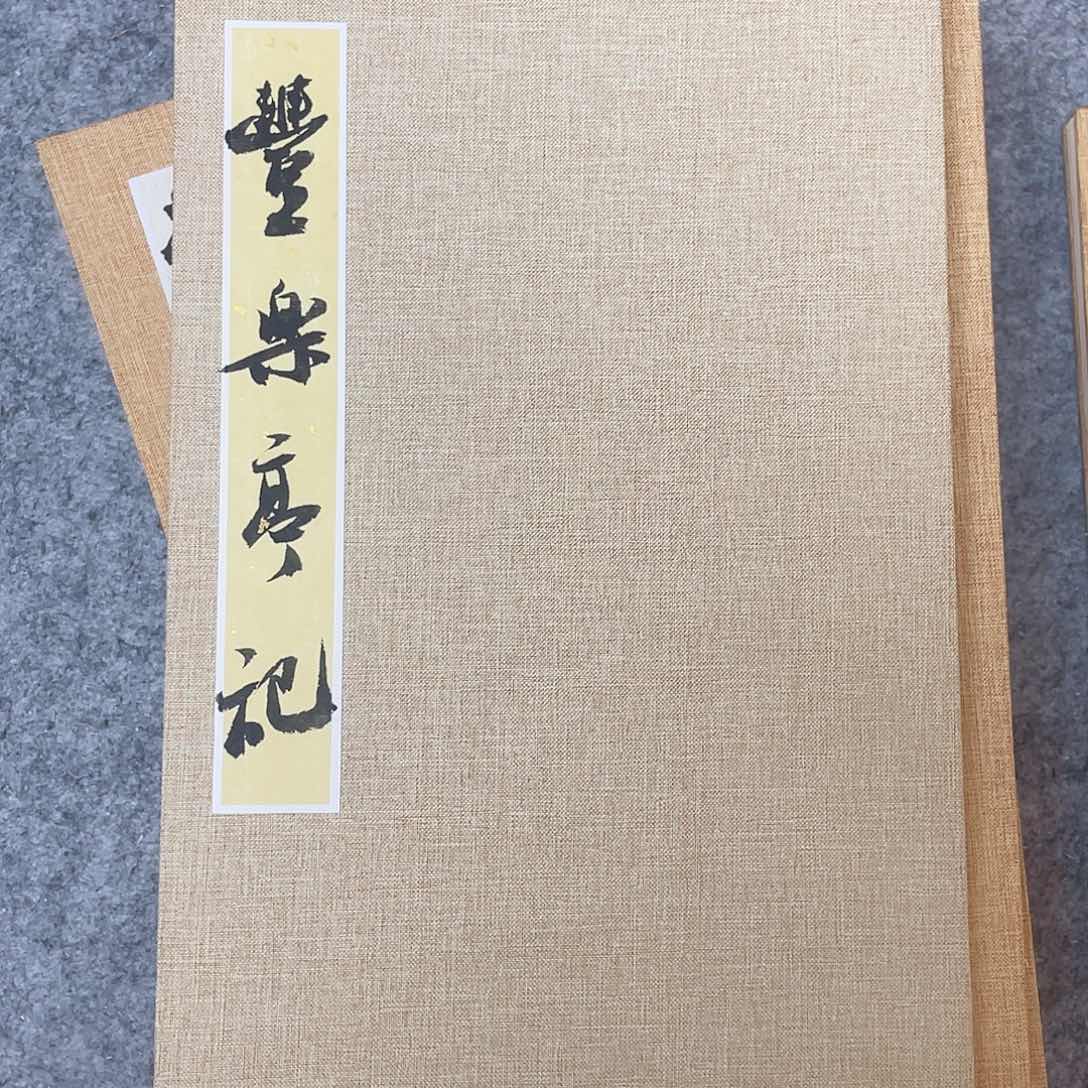 豐樂亭記